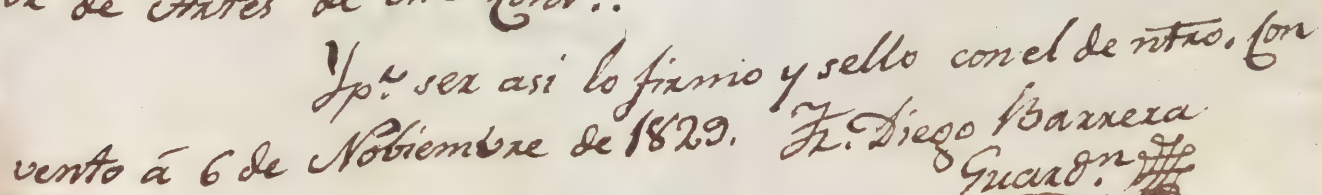 de Artes de
Y p.r ser asi lo firmo y sello con el de ntro. Con
vento á 6 de Nobiembre de 1829. Fr. Diego Barrera
Guard.n